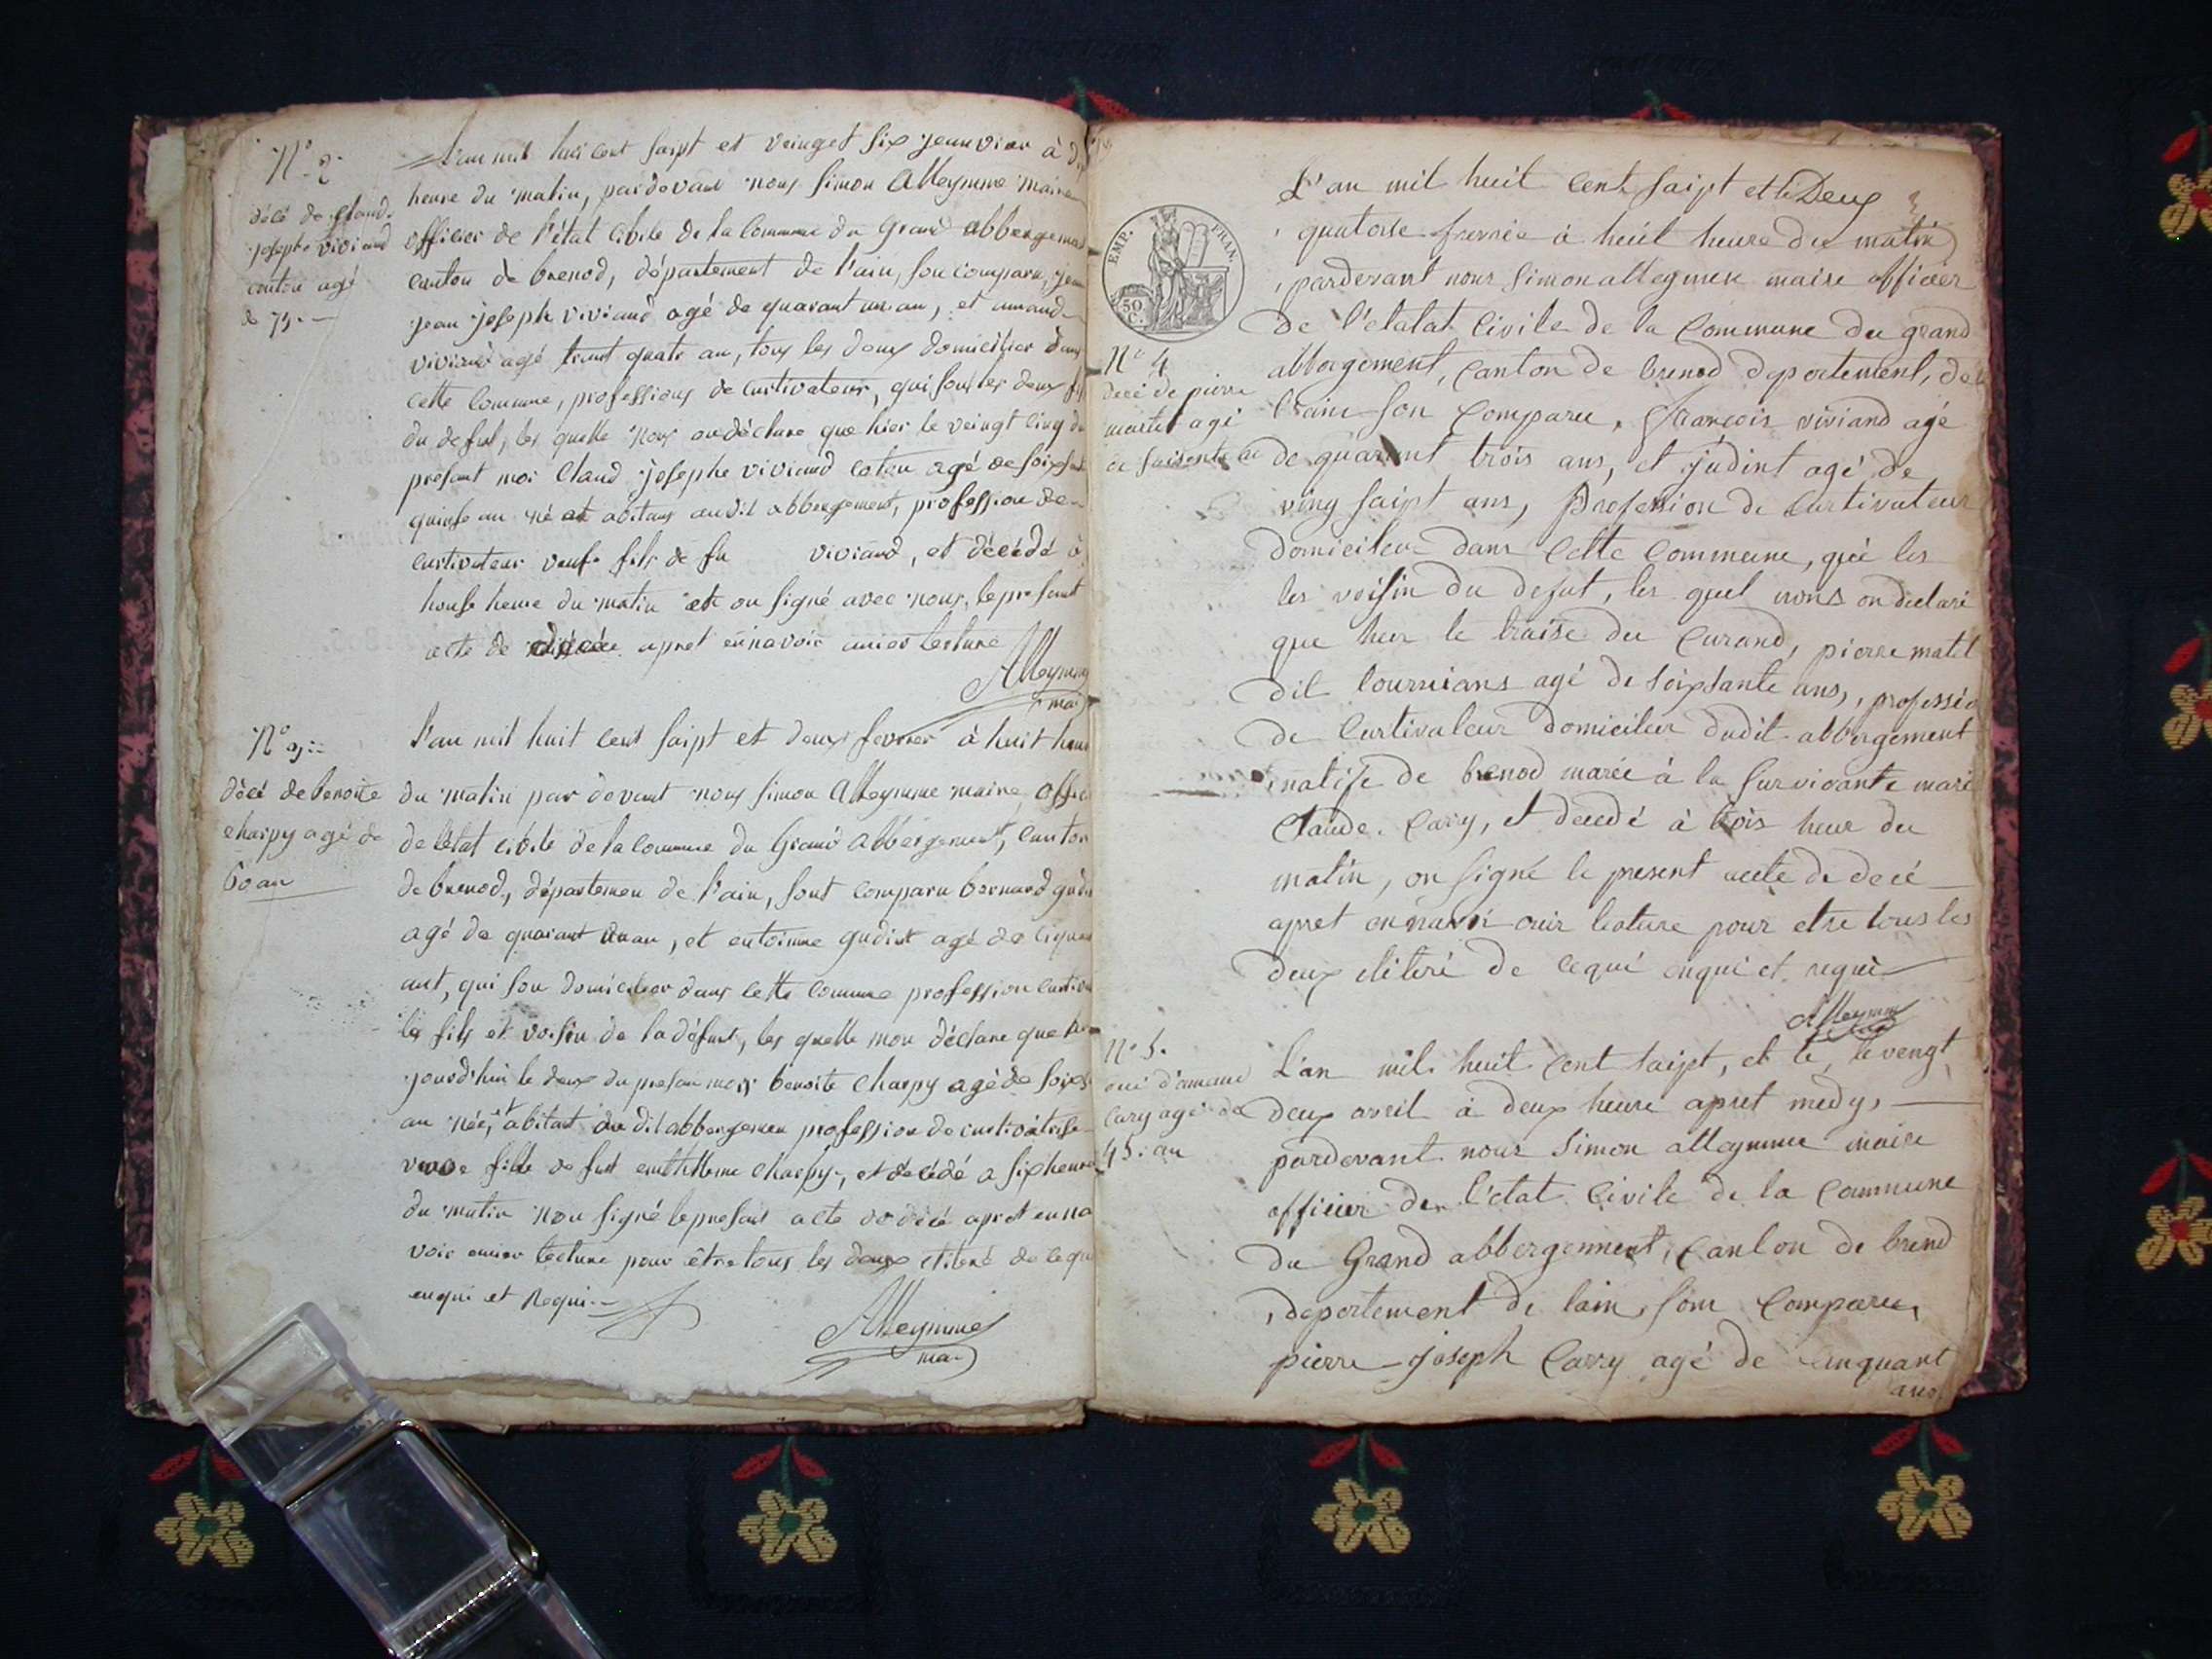 N° 2
décé de Claude
josephe viviand
cottin agé
de 75.
L'an mil huit cent saipt et veinget six jeanvier à
heure du matin, pardevant nous simon Alleymme maire
officier de l'état Civile de la Commune du Grand abbergement
canton de brenod, département de l'ain, son comparu, jean
jean joseph viviand agé de quarant un an, et amand
viviand agé trent quatr an, tous les deux domicilier dans
cette Commune, professions de curtivateur, qui son les deux fils
du defunt, les quelle nous on déclare que hier le veingt cinq du
présent moi Claud josephe viviand cotin agé de soixsante
quinse an né et abitans audit abbergement, profession de
curtivateur veufe fils de fu viviand, et décédé à
honse heure du matin et on signé avec nous, le present
acte de décée apret ennavoir ouier lecture
Alleymme
mai
N° 3
décé de benoite
charpy agé de
60 an
L'an mil huit cent saipt et deux fevrier à huit heure
du matin par devant nous simon Alleymme maire, offic
de l'état civile de la Commune du Grand Abbergement, Canton
de brenod, département de l'ain, sont comparu bernard gudin
agé de quarant an, et entoinne gudint agé de
ant, qui son domicilier dans cette Commune profession
les fils et voisin de la défunt, les quelle mon déclare que
jourd'hui le deux du presan mois benoite Charpy agé de soix
an née, et abitant du dit abbergemen profession de curtivatrise
veuve fille de fut Charpy, et décédé a six heure
du matin nou signé le presant acte de décé apret enna
voir ouier lecture pour être tous les deux elitéré de ce que
enqui et Requi
Alleymme
mai
EMP. FRAN.
50 C.
N° 4
décé de pierre
martel agé
de soisente an
L'an mil huit cent saipt et le Deux
quatorse fevrié à heuit heure du matin
pardevant nous Simon allegmme maire officier
De l'étatat Civile de la Commune du grand
abbergement, Canton de brenod departement, de
l'ain son Comparu, François viviand agé
de quarant trois ans, et judint agé de
ving saipt ans, Profession de Curtivateur
domicileur dans Cette Commune, qui les
les voisin du defut, les quel nous on declaré
que heir le traise du Curand, pierre matel
dit lournians agé de soixsante ans, professio
de Curtivateur domicileur dudit abbergement
natife de brenod marié à la survivante marie
Claude Carry, et decedé à trois heur du
matin, on signé le present acte de decé
apret ennavoir ouir lecture pour etre tous les
deux elitéré de ce qui enqui et requi
Alleymme
N° 5.
d'amand
Cary agé de
45. an
L'an mil huit Cent saipt, et le, le vengt
deux avril à deux heure apret medy,
pardevant nous Simon allegmme maire
officier de l'etat Civile de la Commune
du Grand abbergement, Canton de brend
departement de lain, son Comparu,
pierre joseph Carry agé de cinquant
ans